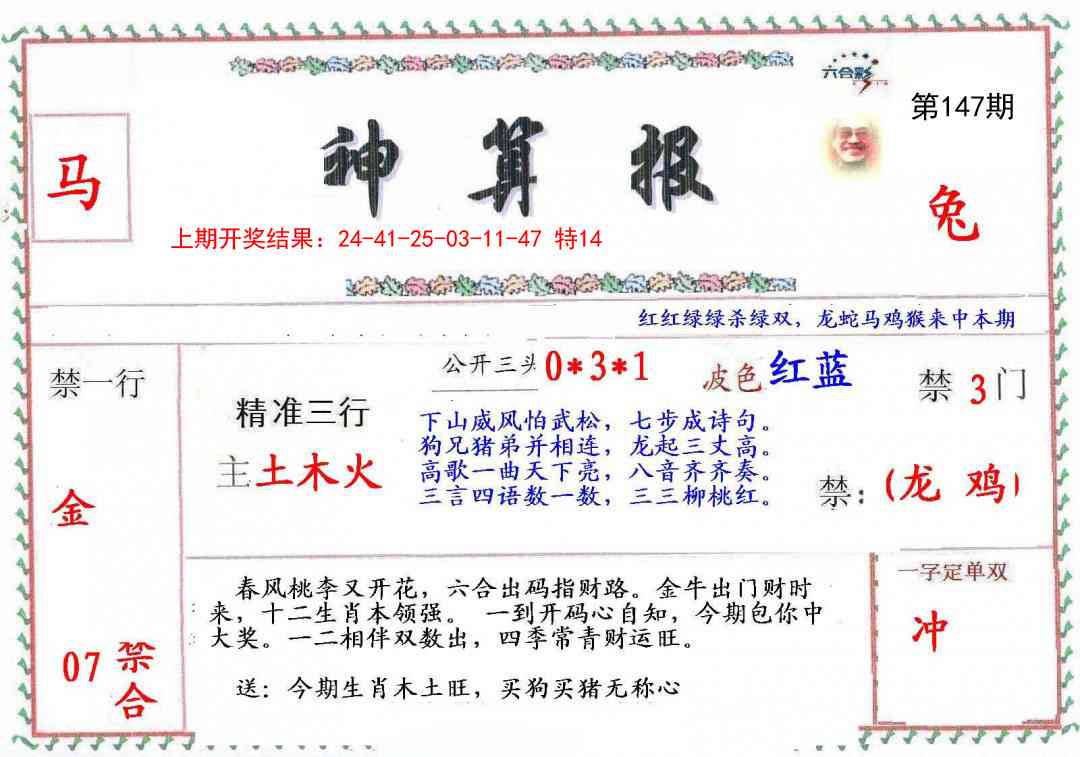 六合彩
第147期
马
神算报
兔
上期开奖结果：24-41-25-03-11-47 特14
红红绿绿杀绿双，龙蛇马鸡猴来中本期
禁一行
公开三头 0*3*1
波色 红蓝
禁 3 门
精准三行
主 土木火
下山威风怕武松，七步成诗句。
狗兄猪弟并相连，龙起三丈高。
高歌一曲天下亮，八音齐齐奏。
三言四语数一数，三三柳桃红。
禁：(龙 鸡)
金
一字定单双
冲
春风桃李又开花，六合出码指财路。金牛出门财时
来，十二生肖本领强。 一到开码心自知，今期包你中
大奖。一二相伴双数出，四季常青财运旺。
07 禁
合
送：今期生肖木土旺，买狗买猪无称心